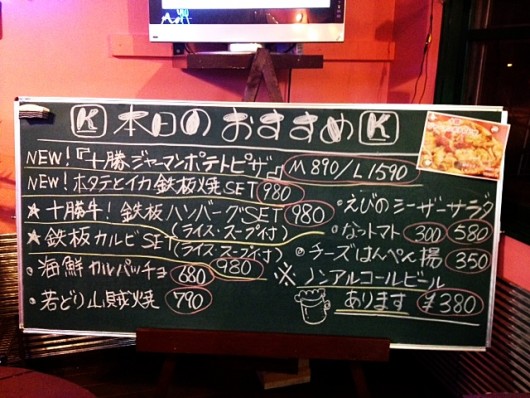 K 本日のおすすめ K
NEW!『十勝ジャーマンポテトピザ』 M890/L1590
NEW! ホタテとイカ鉄板焼SET 980
★十勝牛!鉄板ハンバーグSET 980
(ライス・スープ付)
★鉄板カルビSET 980
(ライス・スープ付)
・海鮮カルパッチョ 680
・若どり山賊焼 790
・えびのシーザーサラダ 580
・なっトマト 300
・チーズはんぺん揚 350
※ノンアルコールビール
あります ¥380